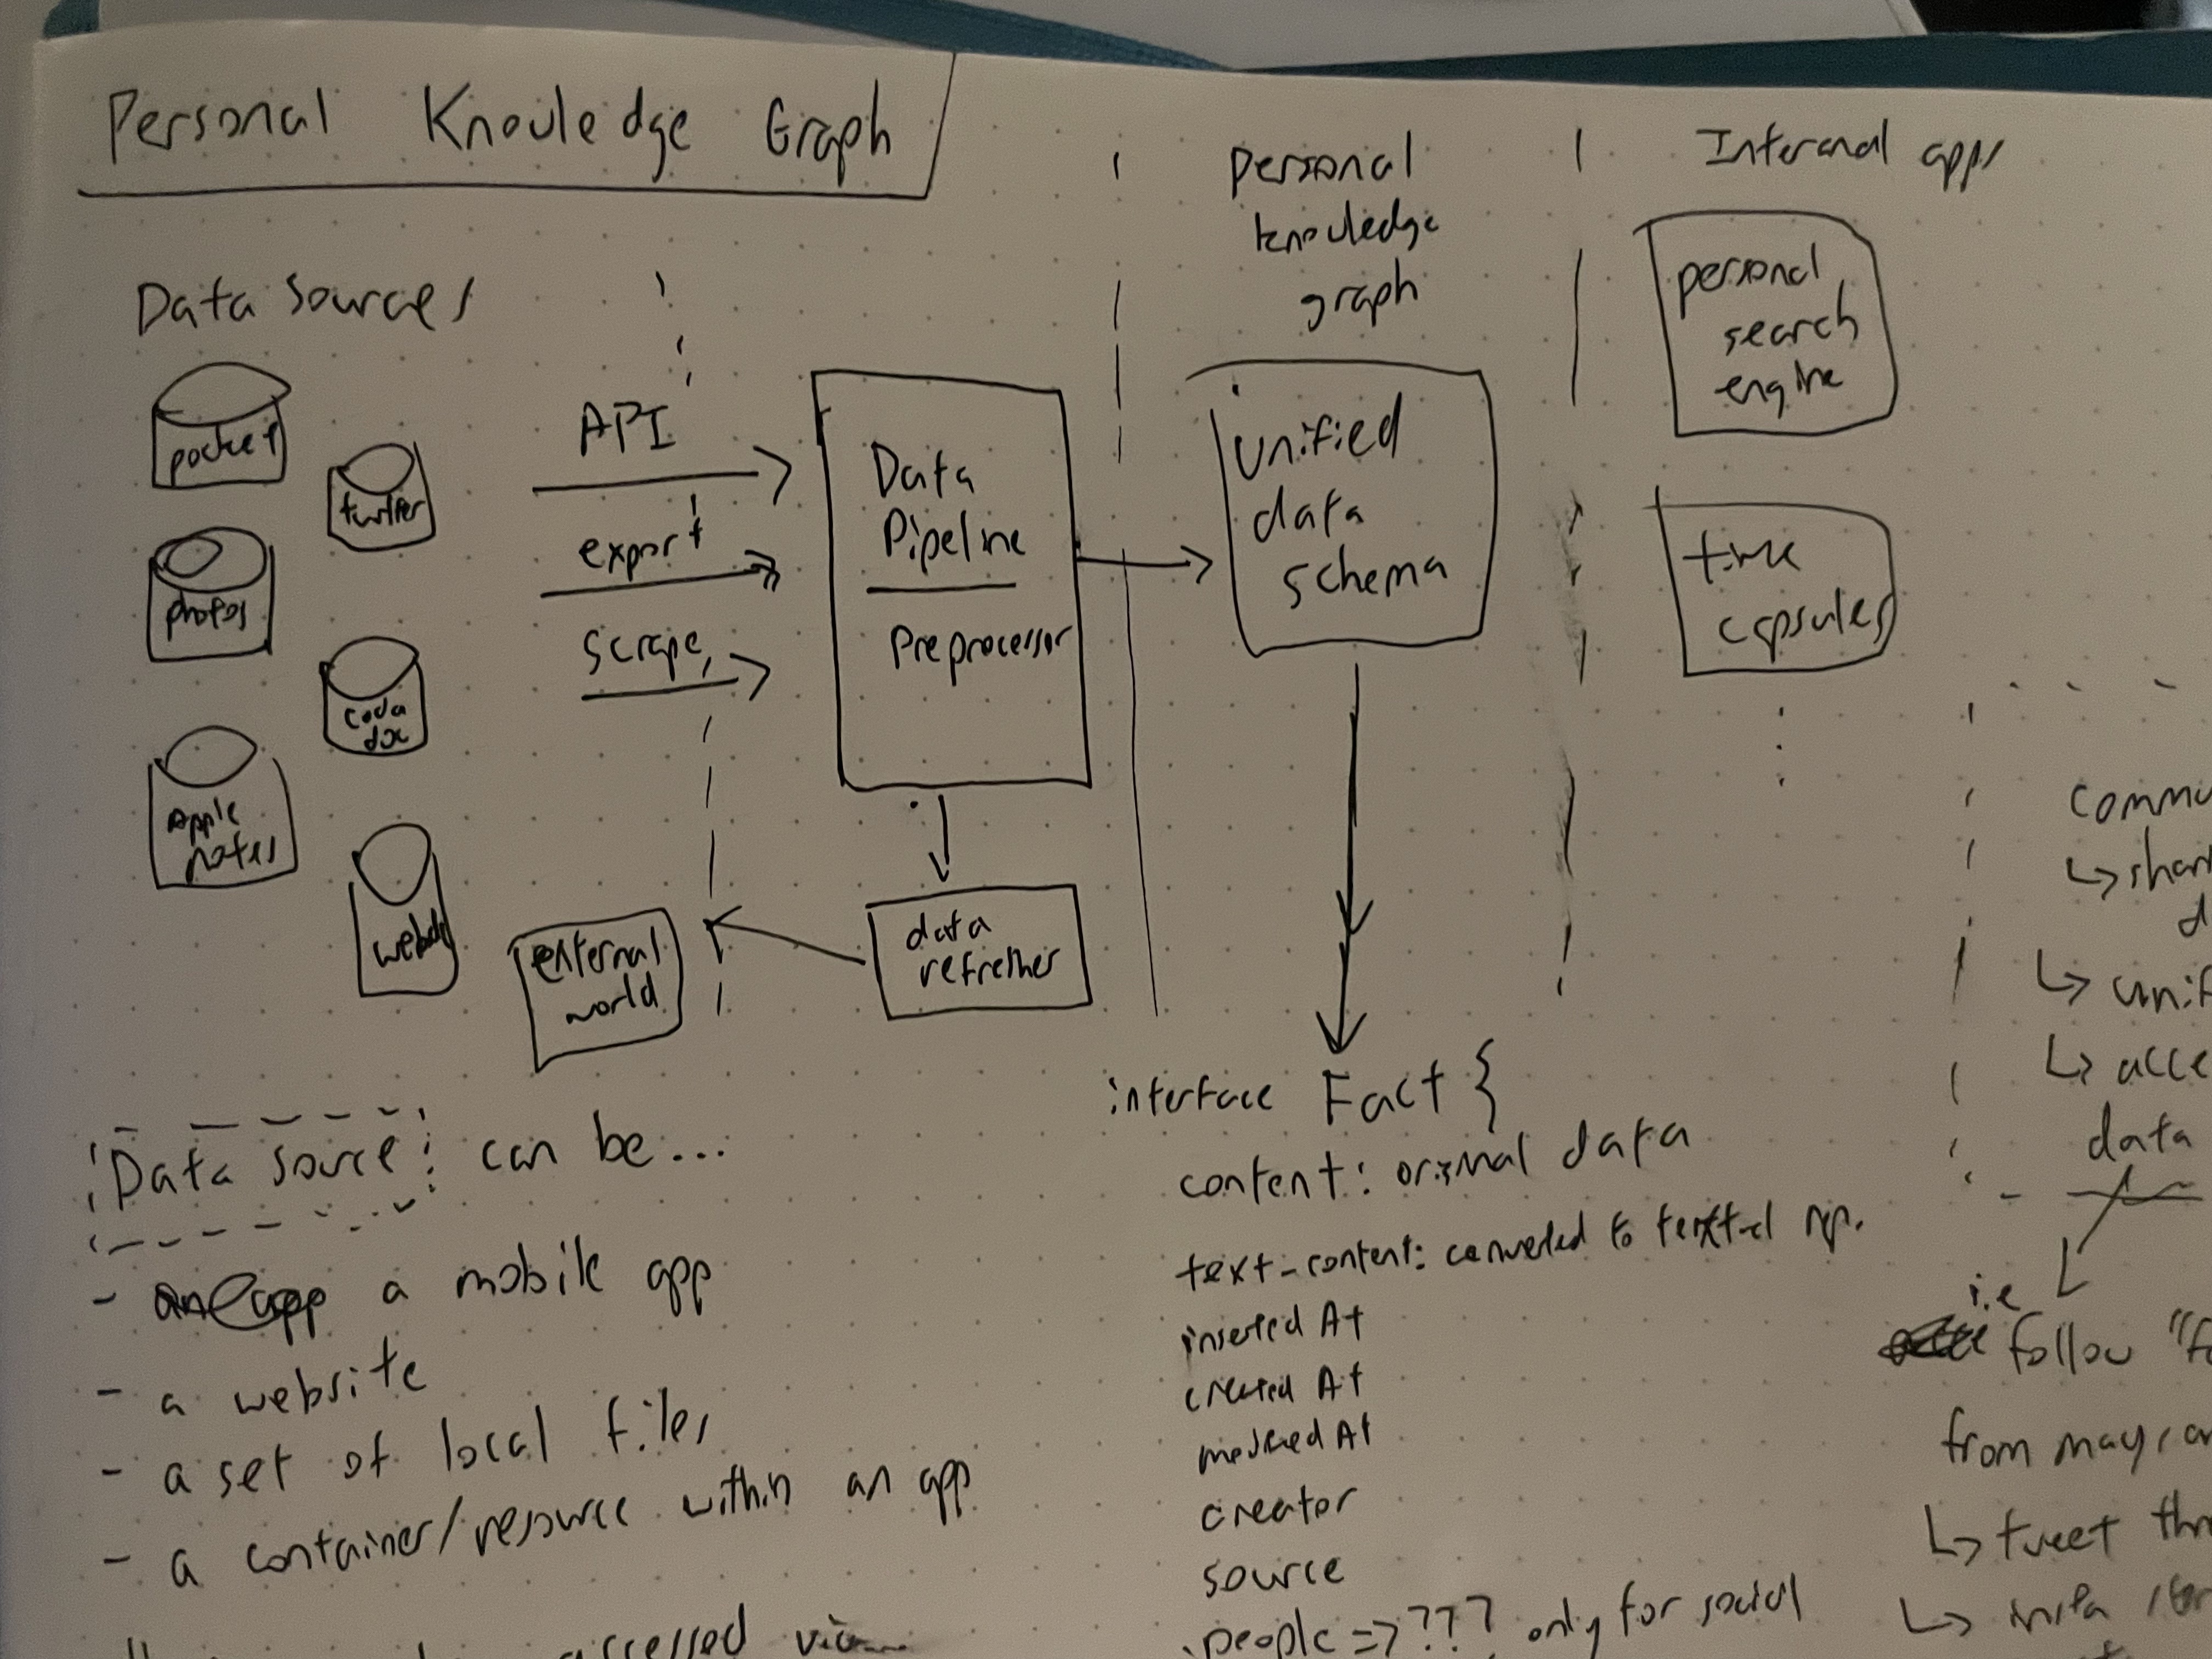 Personal Knowledge Graph
Data sources
pocket
twitter
photos
coda
doc
Apple
notes
API
export
scrape
Data
Pipeline
Preprocessor
data
refresher
external
world
personal
knowledge
graph
unified
data
schema
Internal apps
personal
search
engine
time
capsules
Data source can be...
- a mobile app
- a website
- a set of local files
- a container/resource within an app
accessed via
interface Fact {
content: original data
text-content: converted to textual rep.
inserted At
created At
At
creator
source
people => ??? only for social
↳ shar
d
↳ unif
↳ acce
data
i.e
follow "fo
from
↳ tweet thr
↳ insta